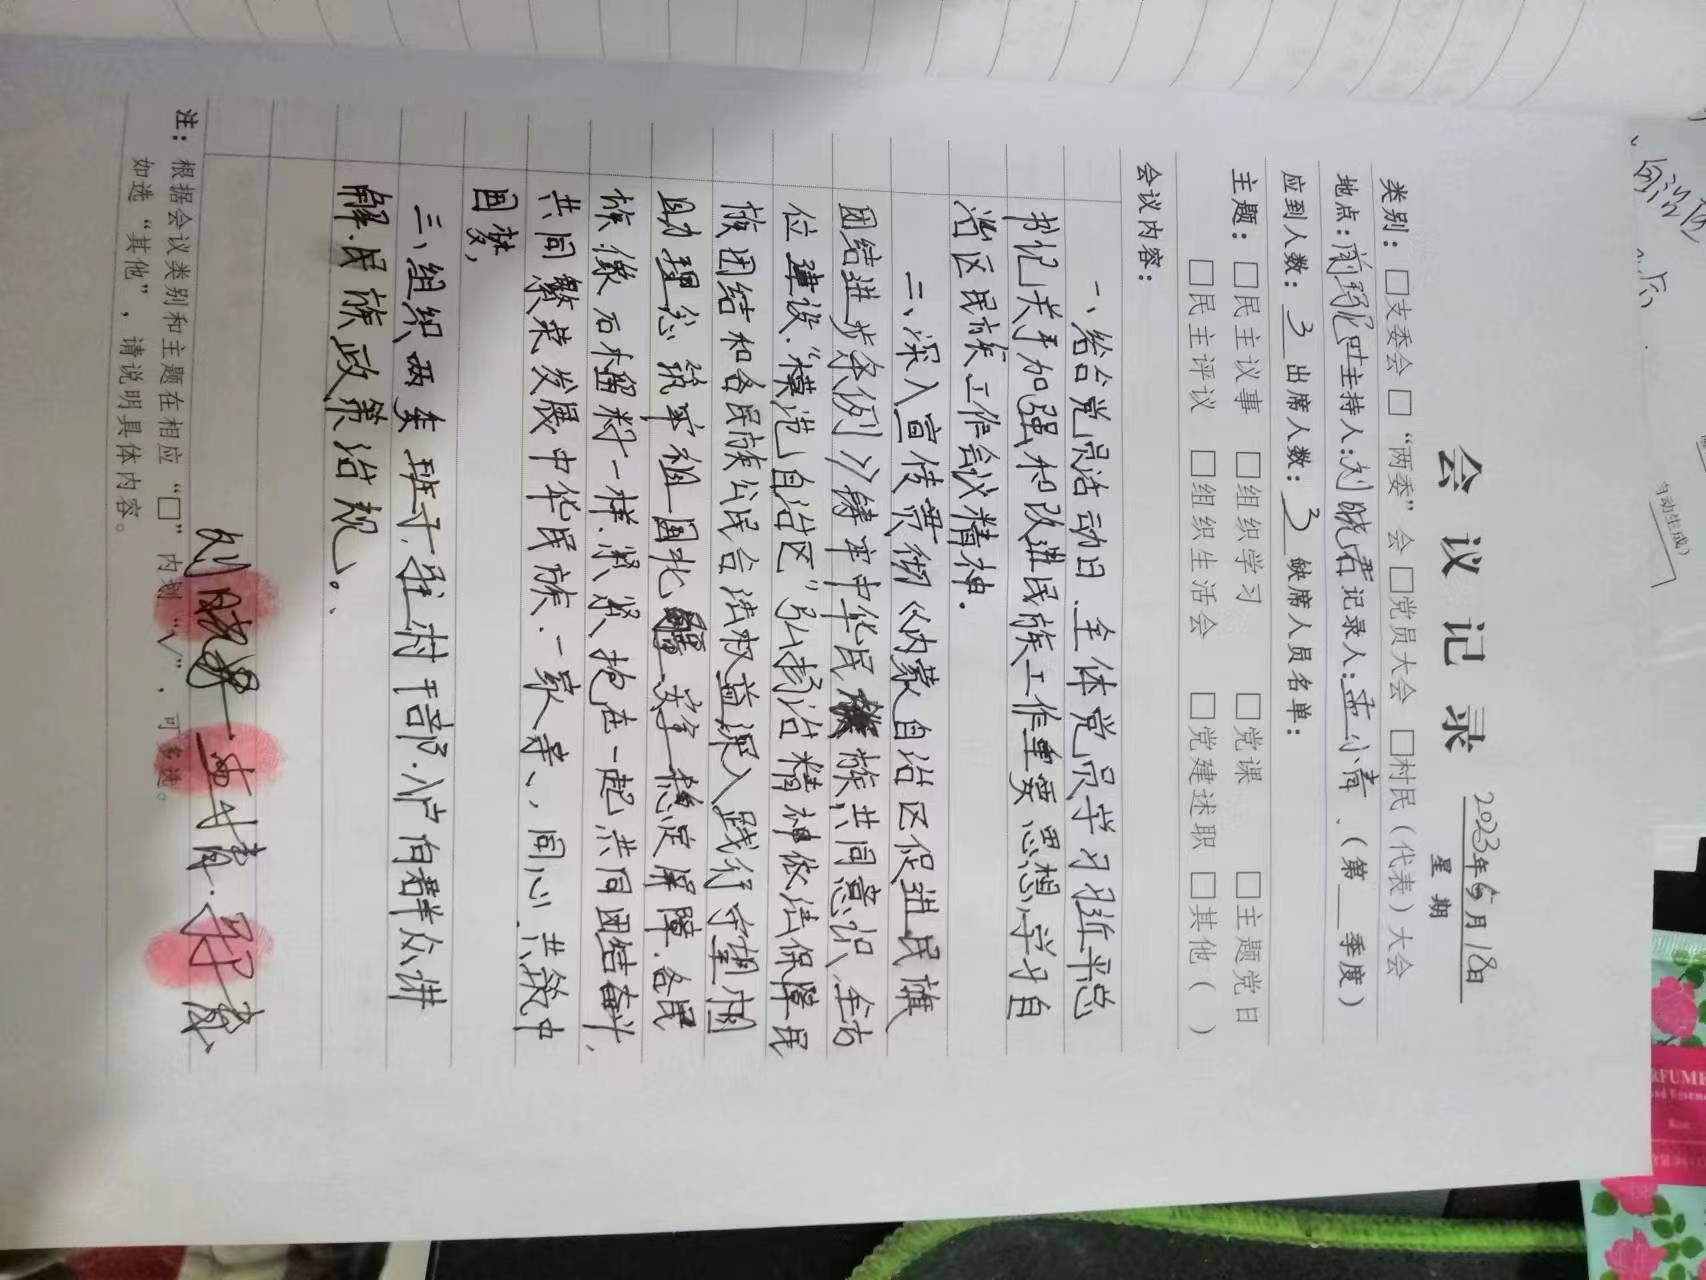 会议记录
2023年6月18日
星期
类别：□支委会 □“两委”会 □党员大会 □村民（代表）大会
地点：主持人：刘晓君 记录人：孟小青（第 季度）
应到人数：3 出席人数：3 缺席人员名单：
主题：□民主议事 □组织学习 □党课 □主题党日
□民主评议 □组织生活会 □党建述职 □其他（ ）
会议内容：
一、给合党员活动日、全体党员学习习近平总
书记关于加强和改进民族工作重要思想，学习自
治区民族工作会议精神.
二、深入宣传贯彻《内蒙自治区促进民族
团结进步条例》铸牢中华民族共同意识全方
位建设.“模范自治区”弘扬法治精神依法保障民
族团结和各民族公民合法权益深入践行守望相
助理念筑牢祖国北疆安全稳定屏障.各民
族像石榴籽一样.紧紧抱在一起共同团结奋斗,
共同繁荣发展中华民族.一家亲、,同心共筑中
国梦,
三、组织两委班子.驻村干部.入户向群众讲
解.民族政策法规。
刘晓君
注：根据会议类别和主题在相应“□”内划“√”，可多选。
如选“其他”，请说明具体内容。
自动生成）